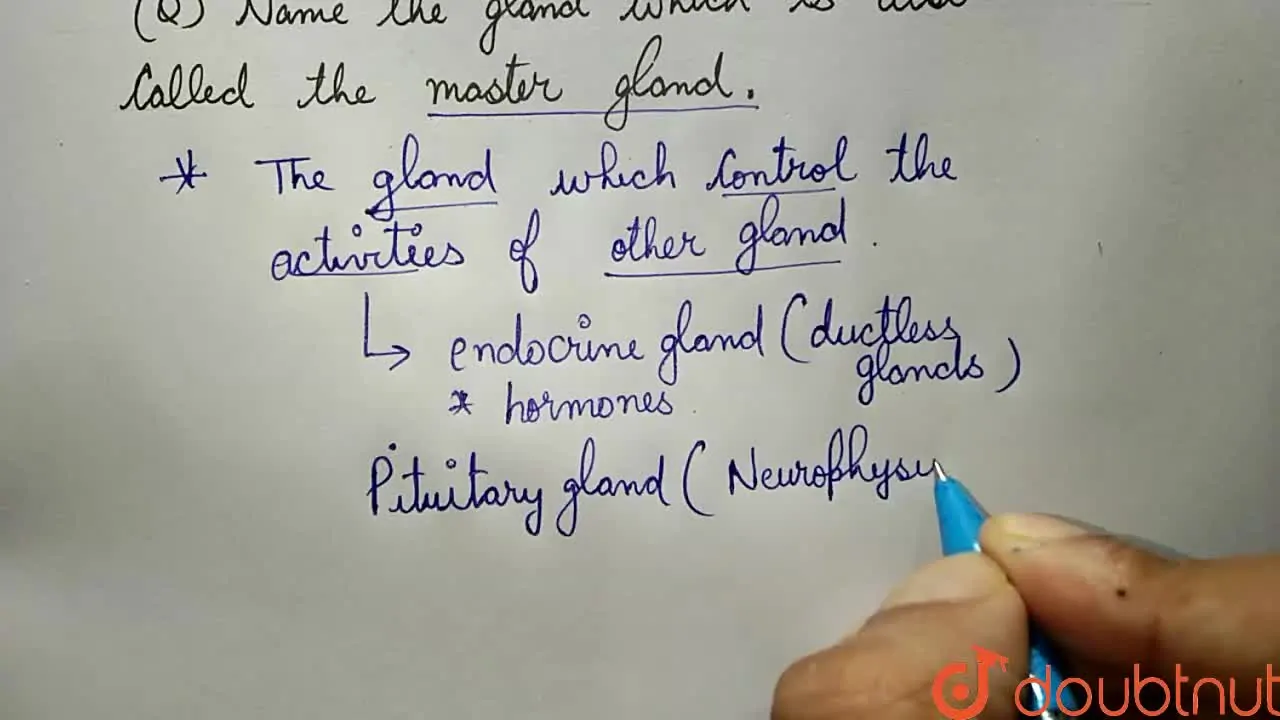 (Q) Name the gland which is also
Called the master gland.
* The gland which control the
activities of other gland.
endocrine gland (ductless
glands)
* hormones
Pituitary gland ( Neurophysi
doubtnut